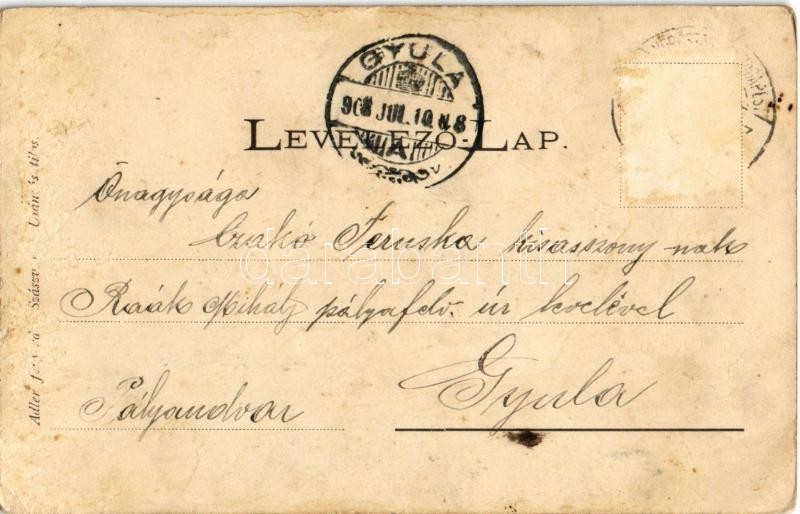 GYULA
JUL. 10. N. 8
LEVELEZŐ-LAP.
Őnagysága
Czakó Teruska kisasszony-nak
Raák Mihály pályafelv. úr levelével
Gyula
Pályaudvar
Adler Szászv
darabanth